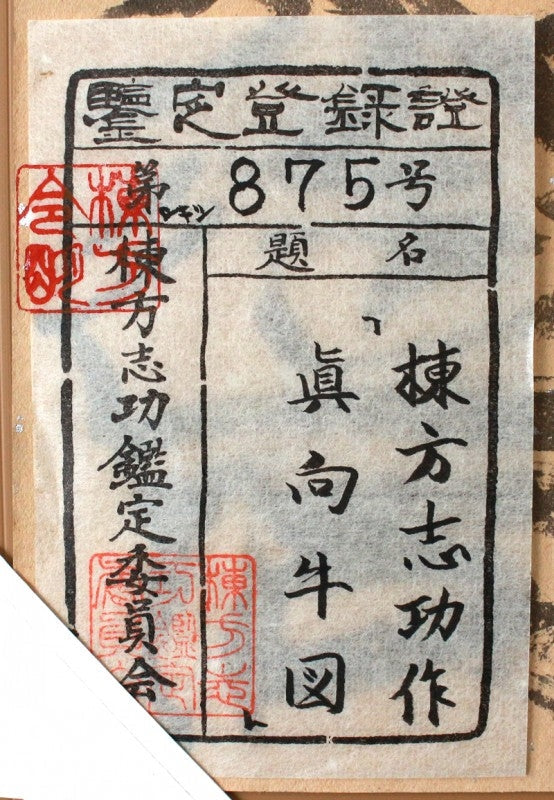 鑒定登録證
第シキツ875号
題名
棟方志功作
「眞向牛図」
棟方志功鑑定委員会